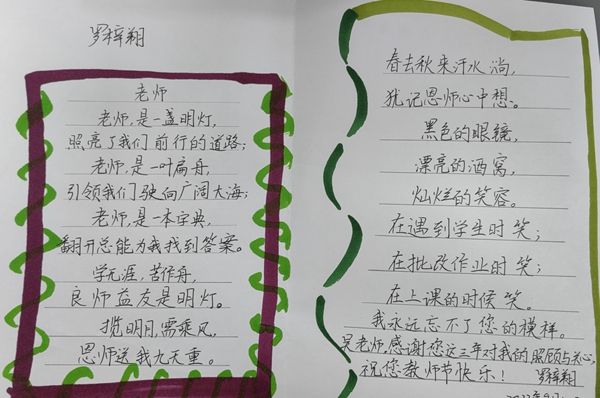 罗梓翔
老师
老师,是一盏明灯,
照亮了我们前行的道路;
老师,是一叶扁舟,
引领我们驶向广阔大海;
老师,是一本字典,
翻开总能为我找到答案。
学无涯,苦作舟,
良师益友是明灯。
揽明日,需乘风,
恩师送我九天重。
春去秋来汗水淌,
犹记恩师心中想。
黑色的眼镜,
漂亮的酒窝,
灿烂的笑容。
在遇到学生时笑;
在批改作业时笑;
在上课的时候笑。
我永远忘不了您的模样。
吴老师,感谢您这三年对我的照顾与关心,
祝您教师节快乐! 罗梓翔